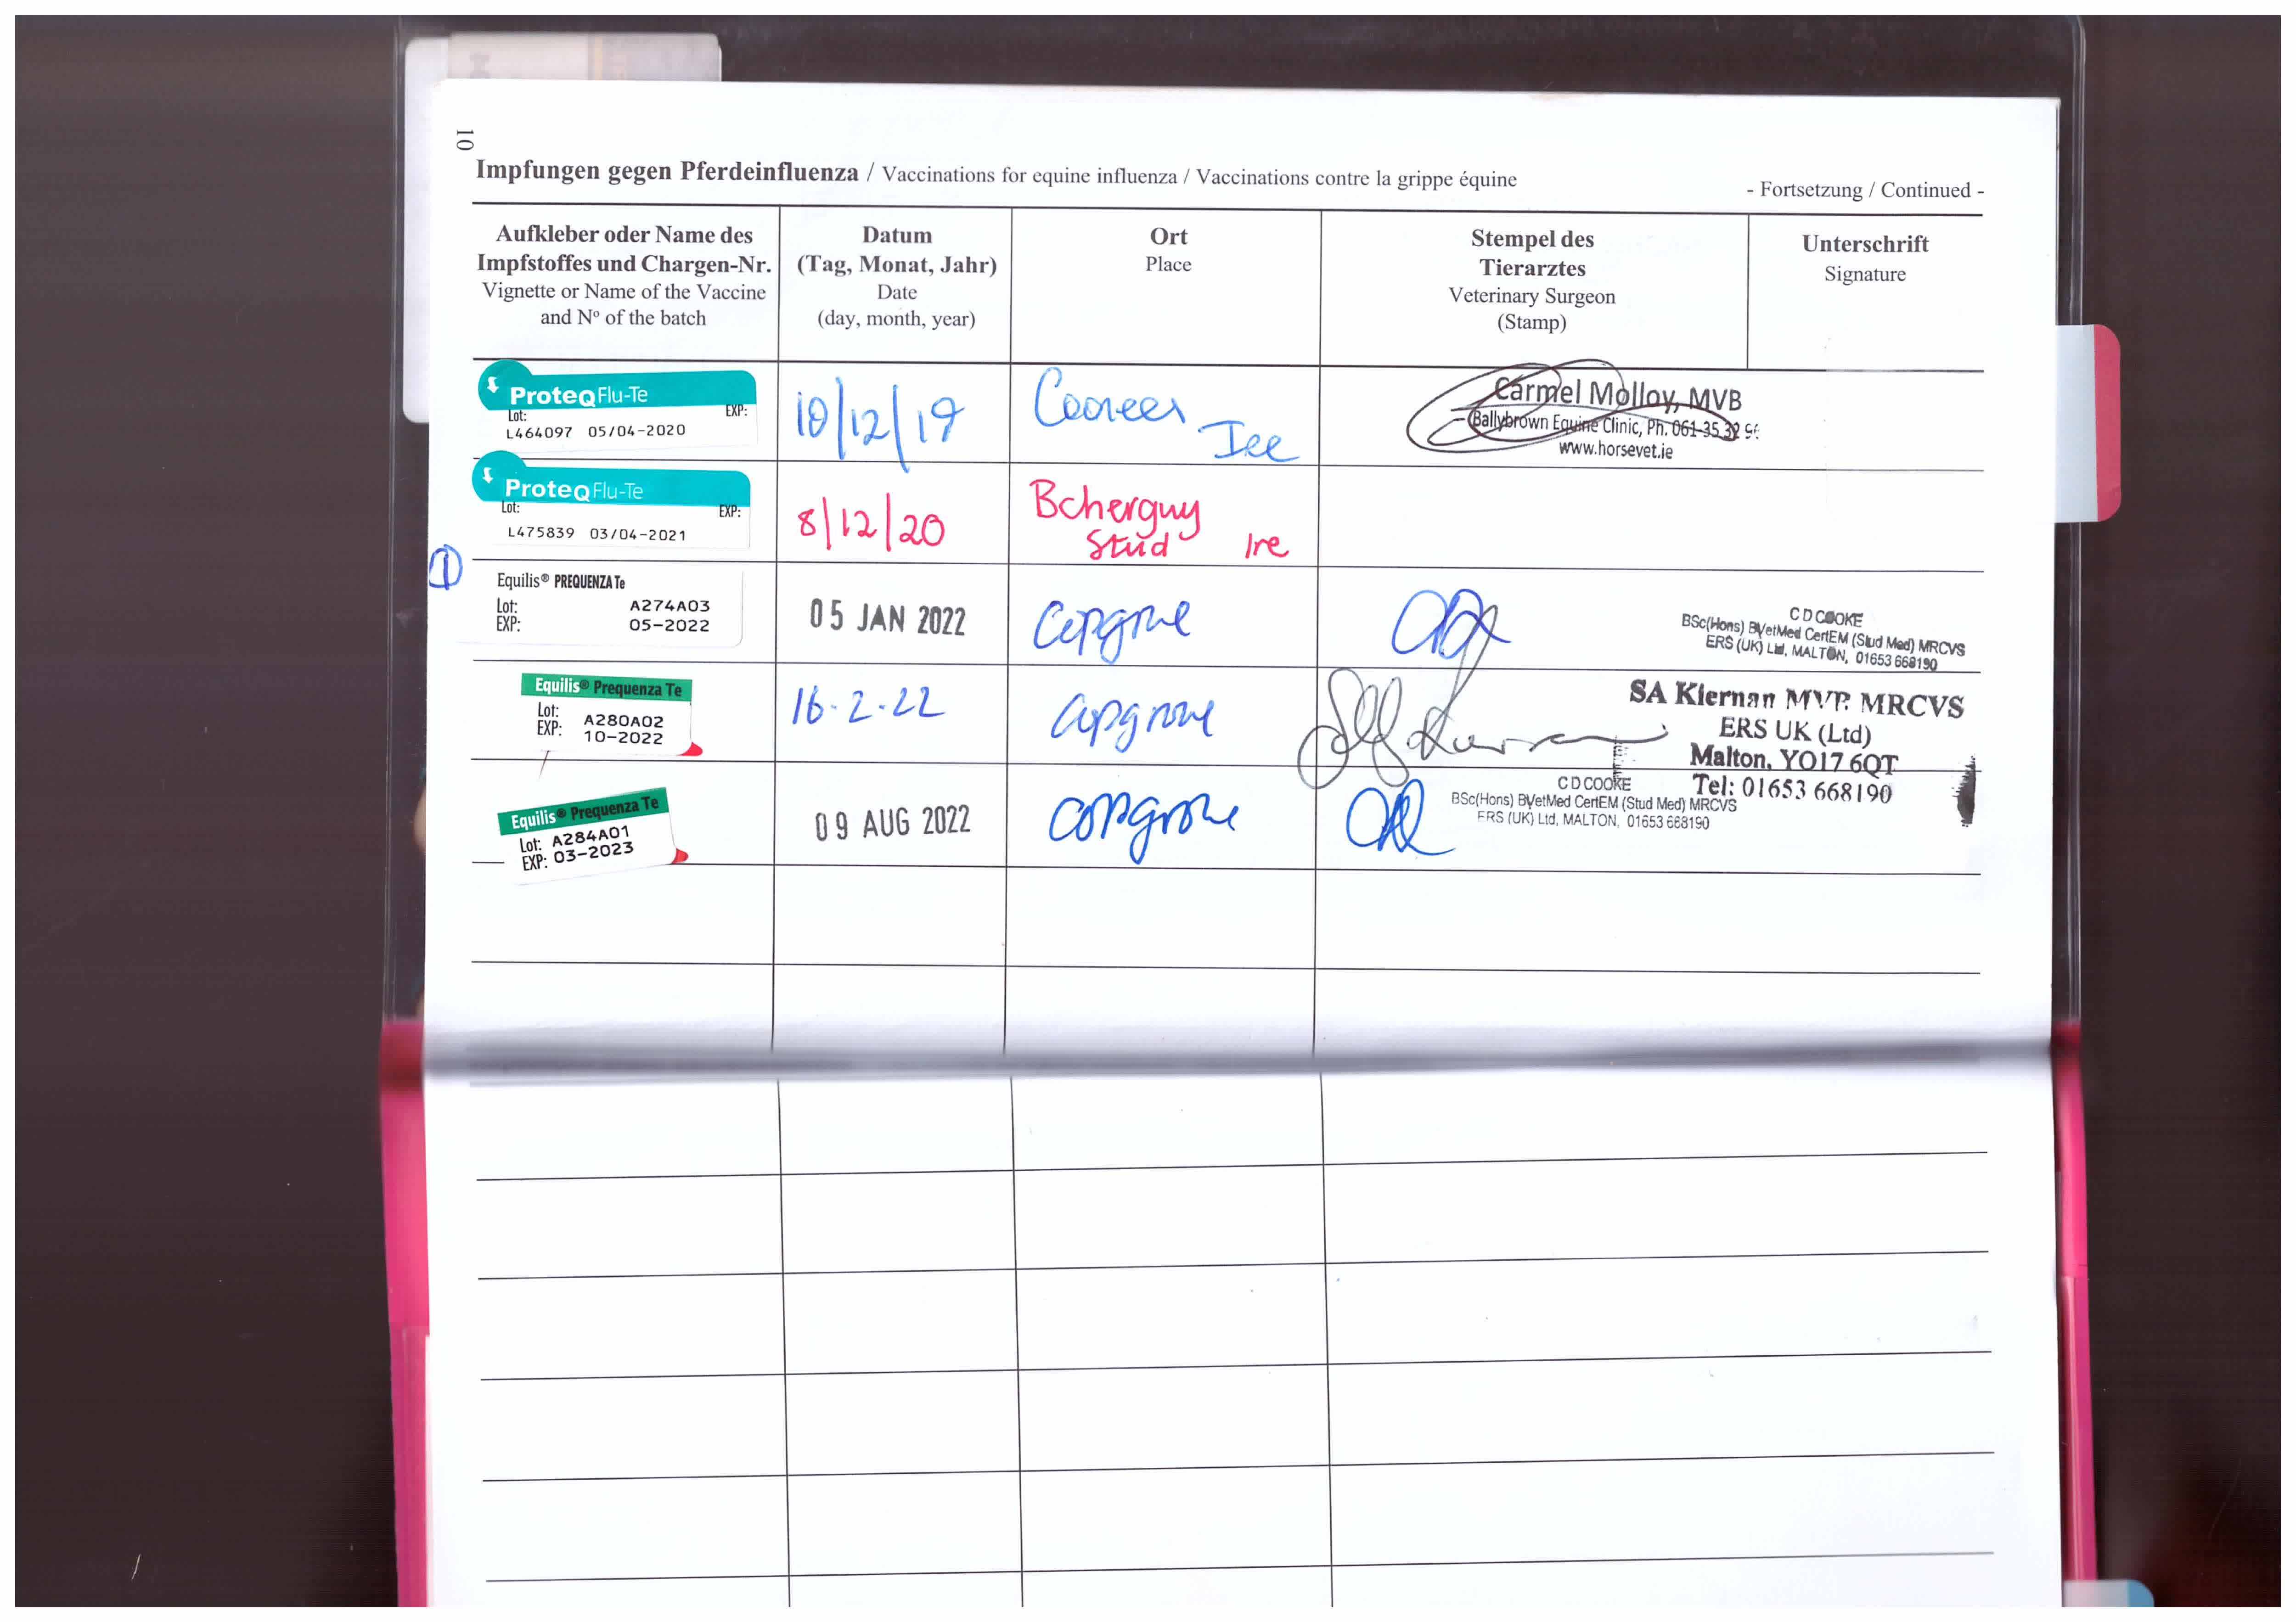 10
Impfungen gegen Pferdeinfluenza / Vaccinations for equine influenza / Vaccinations contre la grippe équine
- Fortsetzung / Continued -
Aufkleber oder Name des
Impfstoffes und Chargen-Nr.
Vignette or Name of the Vaccine
and Nº of the batch
Datum
(Tag, Monat, Jahr)
Date
(day, month, year)
Ort
Place
Stempel des
Tierarztes
Veterinary Surgeon
(Stamp)
Unterschrift
Signature
ProteqFlu-Te
Lot: EXP:
L464097 05/04-2020
10/12/19
Carmel Molloy, MVB
Ballybrown Equine Clinic, Ph. 061-35.32
www.horsevet.ie
ProteqFlu-Te
Lot: EXP:
L475839 03/04-2021
8/12/20
Bcherguy
Stud Ire
1
Equilis® PREQUENZA Te
Lot: A274A03
EXP: 05-2022
05 JAN 2022
Copgrove
C D COOKE
BSc(Hons) BVetMed CertEM (Stud Med) MRCVS
ERS (UK) Ltd, MALTON, 01653 668190
Equilis® Prequenza Te
Lot: A280A02
EXP: 10-2022
16.2.22
Copgrove
SA Kiernan MVB MRCVS
ERS UK (Ltd)
Malton, YO17 6QT
Tel: 01653 668190
Equilis® Prequenza Te
Lot: A284A01
EXP: 03-2023
09 AUG 2022
Copgrove
C D COOKE
BSc(Hons) BVetMed CertEM (Stud Med) MRCVS
ERS (UK) Ltd, MALTON, 01653 668190